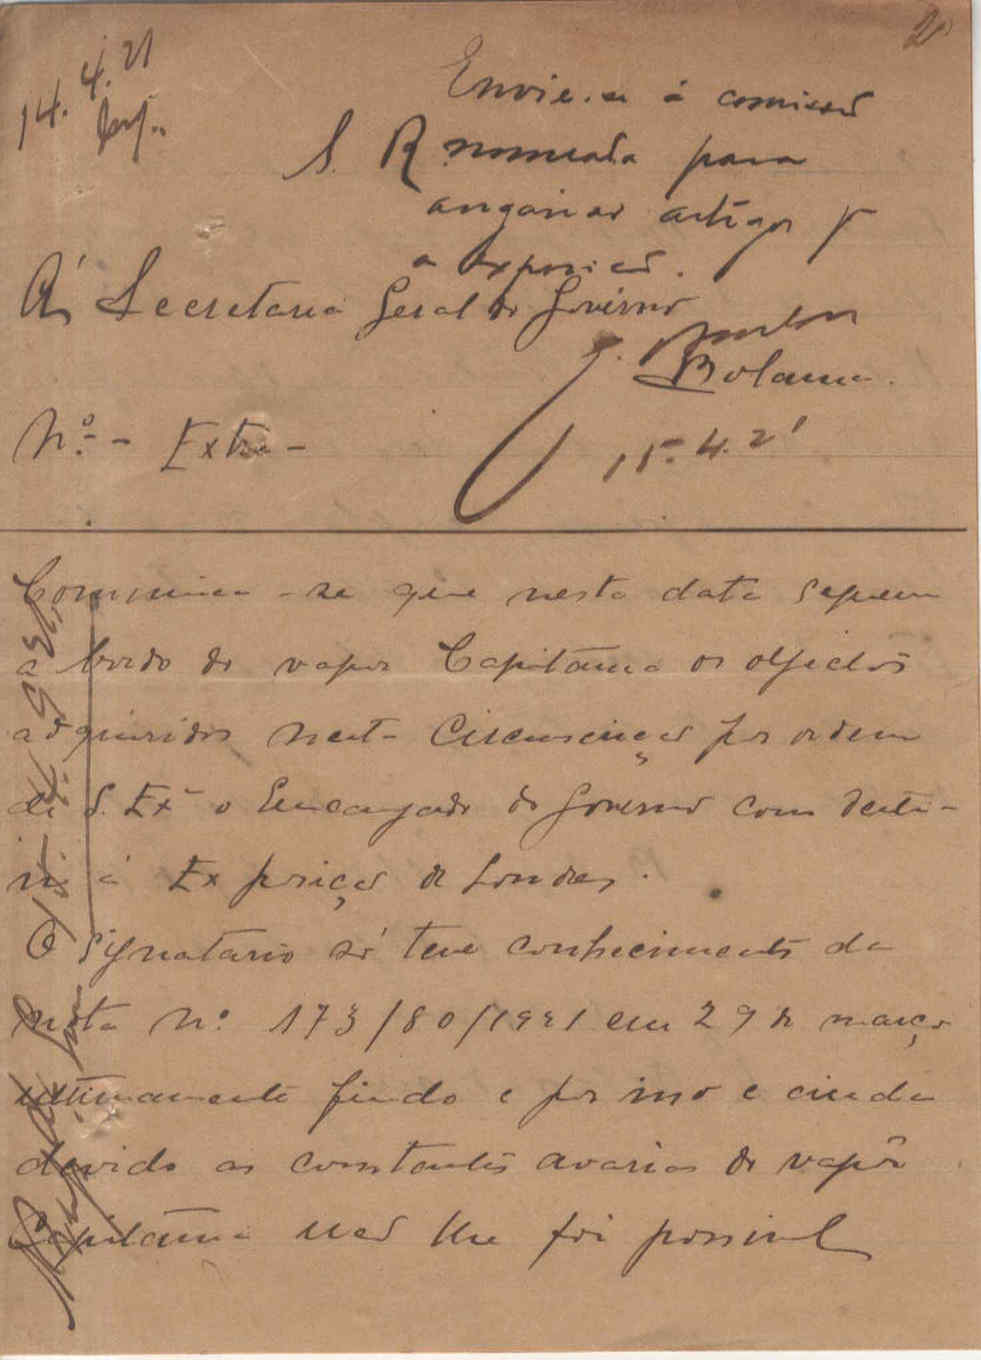 2
14. 4. 21
Envie-se á comissão
S. R. nomeada para
angariar artigos pª
a exposição.
Á Secretaria Geral do Govêrno
Bolama.
Nº. - Extra -
15. 4. 21
Communica-se que nesta data seguem
a bordo do vapor Capitania os objectos
adquiridos nesta Circunscrição por ordem
de S. Exª o Encarregado do Governo com desti-
no á Exposição de Londres.
O signatario só teve conhecimento da
nota Nº. 173/80/1921 em 29 de março
ultimamente findo e por isso e ainda
devido as constantes avarias do vapôr
Capitania não lhe foi possivel